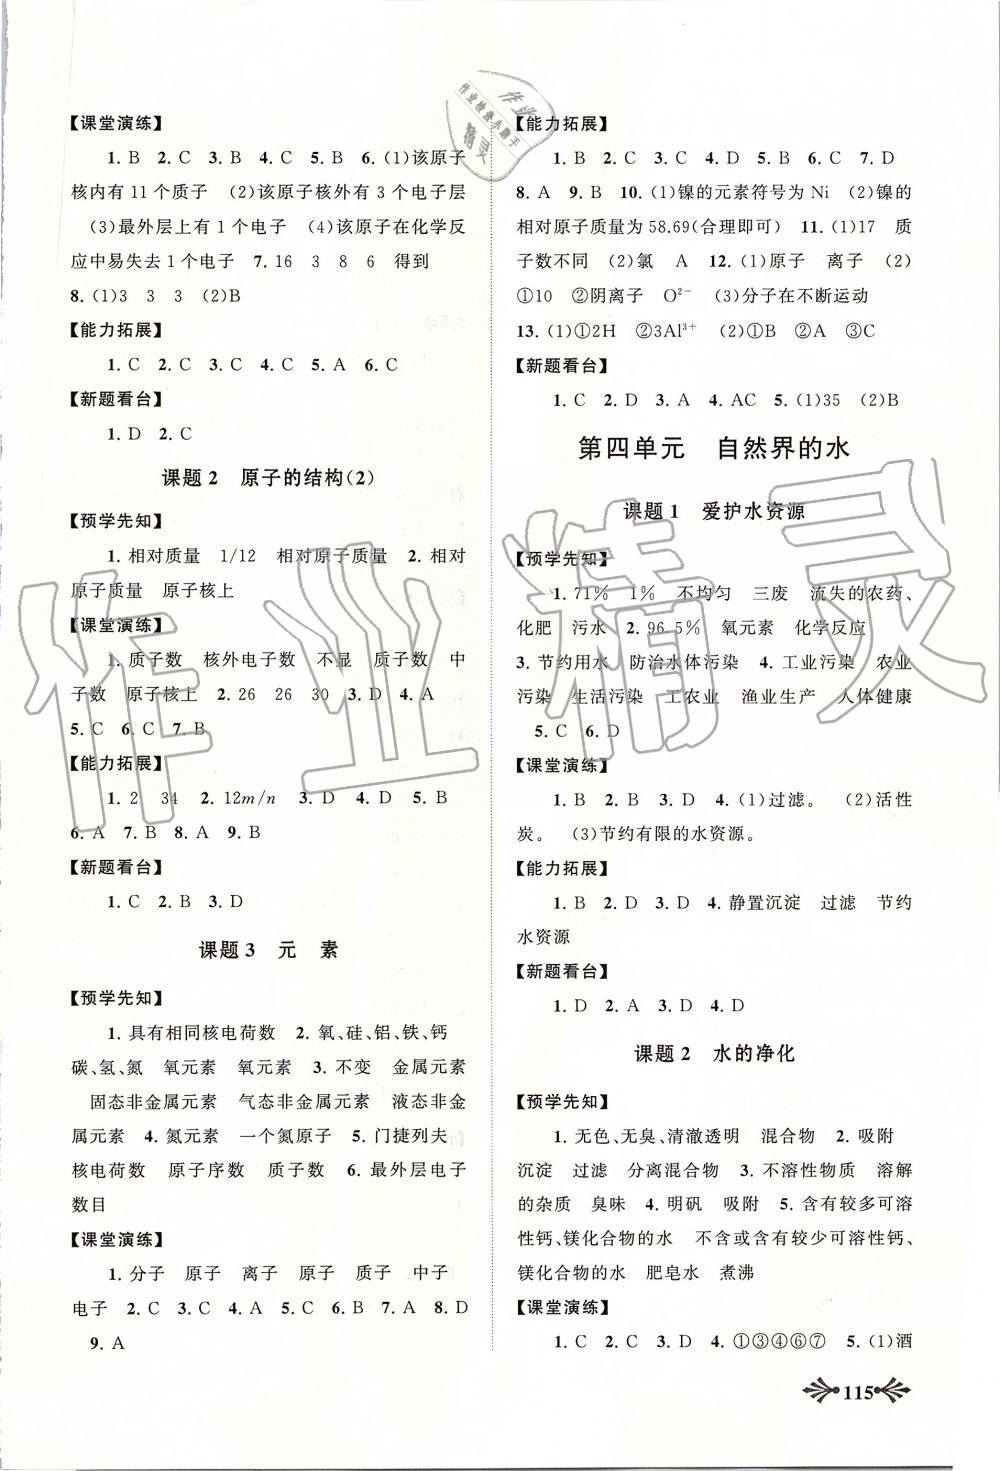 【课堂演练】
1. B 2. C 3. B 4. C 5. B 6. (1)该原子
核内有 11 个质子 (2)该原子核外有 3 个电子层
(3)最外层上有 1 个电子 (4)该原子在化学反
应中易失去 1 个电子 7. 16 3 8 6 得到
8. (1)3 3 3 (2)B
【能力拓展】
1. C 2. C 3. C 4. C 5. A 6. C
【新题看台】
1. D 2. C
课题 2 原子的结构(2)
【预学先知】
1. 相对质量 1/12 相对原子质量 2. 相对
原子质量 原子核上
【课堂演练】
1. 质子数 核外电子数 不显 质子数 中
子数 原子核上 2. 26 26 30 3. D 4. A
5. C 6. C 7. B
【能力拓展】
1. 2 34 2. 12m/n 3. D 4. D 5. B
6. A 7. B 8. A 9. B
【新题看台】
1. C 2. B 3. D
课题 3 元 素
【预学先知】
1. 具有相同核电荷数 2. 氧、硅、铝、铁、钙
碳、氢、氮 氧元素 氧元素 3. 不变 金属元素
固态非金属元素 气态非金属元素 液态非金
属元素 4. 氮元素 一个氮原子 5. 门捷列夫
核电荷数 原子序数 质子数 6. 最外层电子
数目
【课堂演练】
1. 分子 原子 离子 原子 质子 中子
电子 2. C 3. C 4. A 5. C 6. B 7. A 8. D
9. A
【能力拓展】
1. B 2. C 3. C 4. D 5. B 6. C 7. D
8. A 9. B 10. (1)镍的元素符号为 Ni (2)镍的
相对原子质量为 58.69(合理即可) 11. (1)17 质
子数不同 (2)氯 A 12. (1)原子 离子 (2)
①10 ②阴离子 O²⁻ (3)分子在不断运动
13. (1)①2H ②3Al³⁺ (2)①B ②A ③C
【新题看台】
1. C 2. D 3. A 4. AC 5. (1)35 (2)B
第四单元 自然界的水
课题 1 爱护水资源
【预学先知】
1. 71% 1% 不均匀 三废 流失的农药、
化肥 污水 2. 96.5% 氧元素 化学反应
3. 节约用水 防治水体污染 4. 工业污染 农业
污染 生活污染 工农业 渔业生产 人体健康
5. C 6. D
【课堂演练】
1. B 2. B 3. D 4. (1)过滤。 (2)活性
炭。 (3)节约有限的水资源。
【能力拓展】
1. B 2. D 3. D 4. 静置沉淀 过滤 节约
水资源
【新题看台】
1. D 2. A 3. D 4. D
课题 2 水的净化
【预学先知】
1. 无色、无臭、清澈透明 混合物 2. 吸附
沉淀 过滤 分离混合物 3. 不溶性物质 溶解
的杂质 臭味 4. 明矾 吸附 5. 含有较多可溶
性钙、镁化合物的水 不含或含有较少可溶性钙、
镁化合物的水 肥皂水 煮沸
【课堂演练】
1. C 2. C 3. D 4. ①③④⑥⑦ 5. (1)酒
115
作业
作业检查小助手
精灵
作业精灵